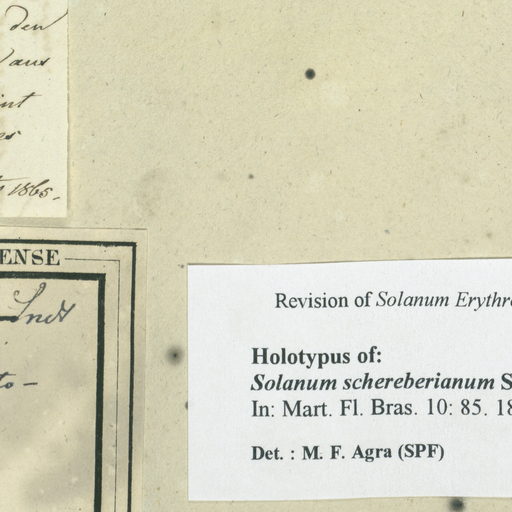 den
aus
1865.
ENSE
to –
Revision of Solanum Erythr
Holotypus of:
Solanum schereberianum S
In: Mart. Fl. Bras. 10: 85. 18
Det. : M. F. Agra (SPF)